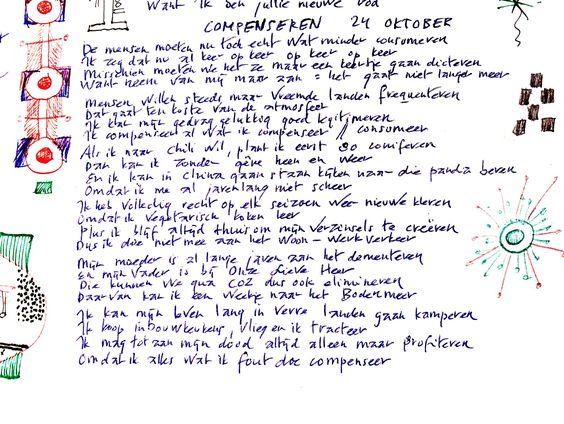 Want ik ben jullie nieuwe God
COMPENSEREN 24 OKTOBER
De mensen moeten nu toch echt wat minder consumeren
Ik zeg dat nu al keer op keer op keer op keer
Misschien moeten we het ze maar een keertje gaan dicteren
Want neem van mij maar aan = het gaat niet langer meer
Mensen willen steeds maar vreemde landen frequenteren
Dat gaat ten koste van de atmosfeer
Ik kan mijn gedrag gelukkig goed legitimeren
Ik compenseer al wat ik compenseer // consumeer
Als ik naar Chili wil, plant ik eerst 80 coniferen
Dan kan ik zonder gêne heen en weer
En ik kan in China gaan staan kijken naar die panda beren
Omdat ik me al jarenlang niet scheer
Ik heb volledig recht op elk seizoen weer nieuwe kleren
Omdat ik vegetarisch koken leer
Plus ik blijf altijd thuis om mijn verzinsels te creëren
Dus ik doe niet mee aan het woon-werkverkeer
Mijn moeder is al lange jaren aan het dementeren
En mijn vader is bij Onze Lieve Heer
Die kunnen we qua CO2 dus ook elimineren
Daarvan kan ik een weekje naar het Bodenmeer
Ik kan mijn leven lang in verre landen gaan kamperen
Ik koop inbouwkeukens, vlieg en ik tracteer
Ik mag tot aan mijn dood altijd alleen maar profiteren
Omdat ik alles wat ik fout doe compenseer